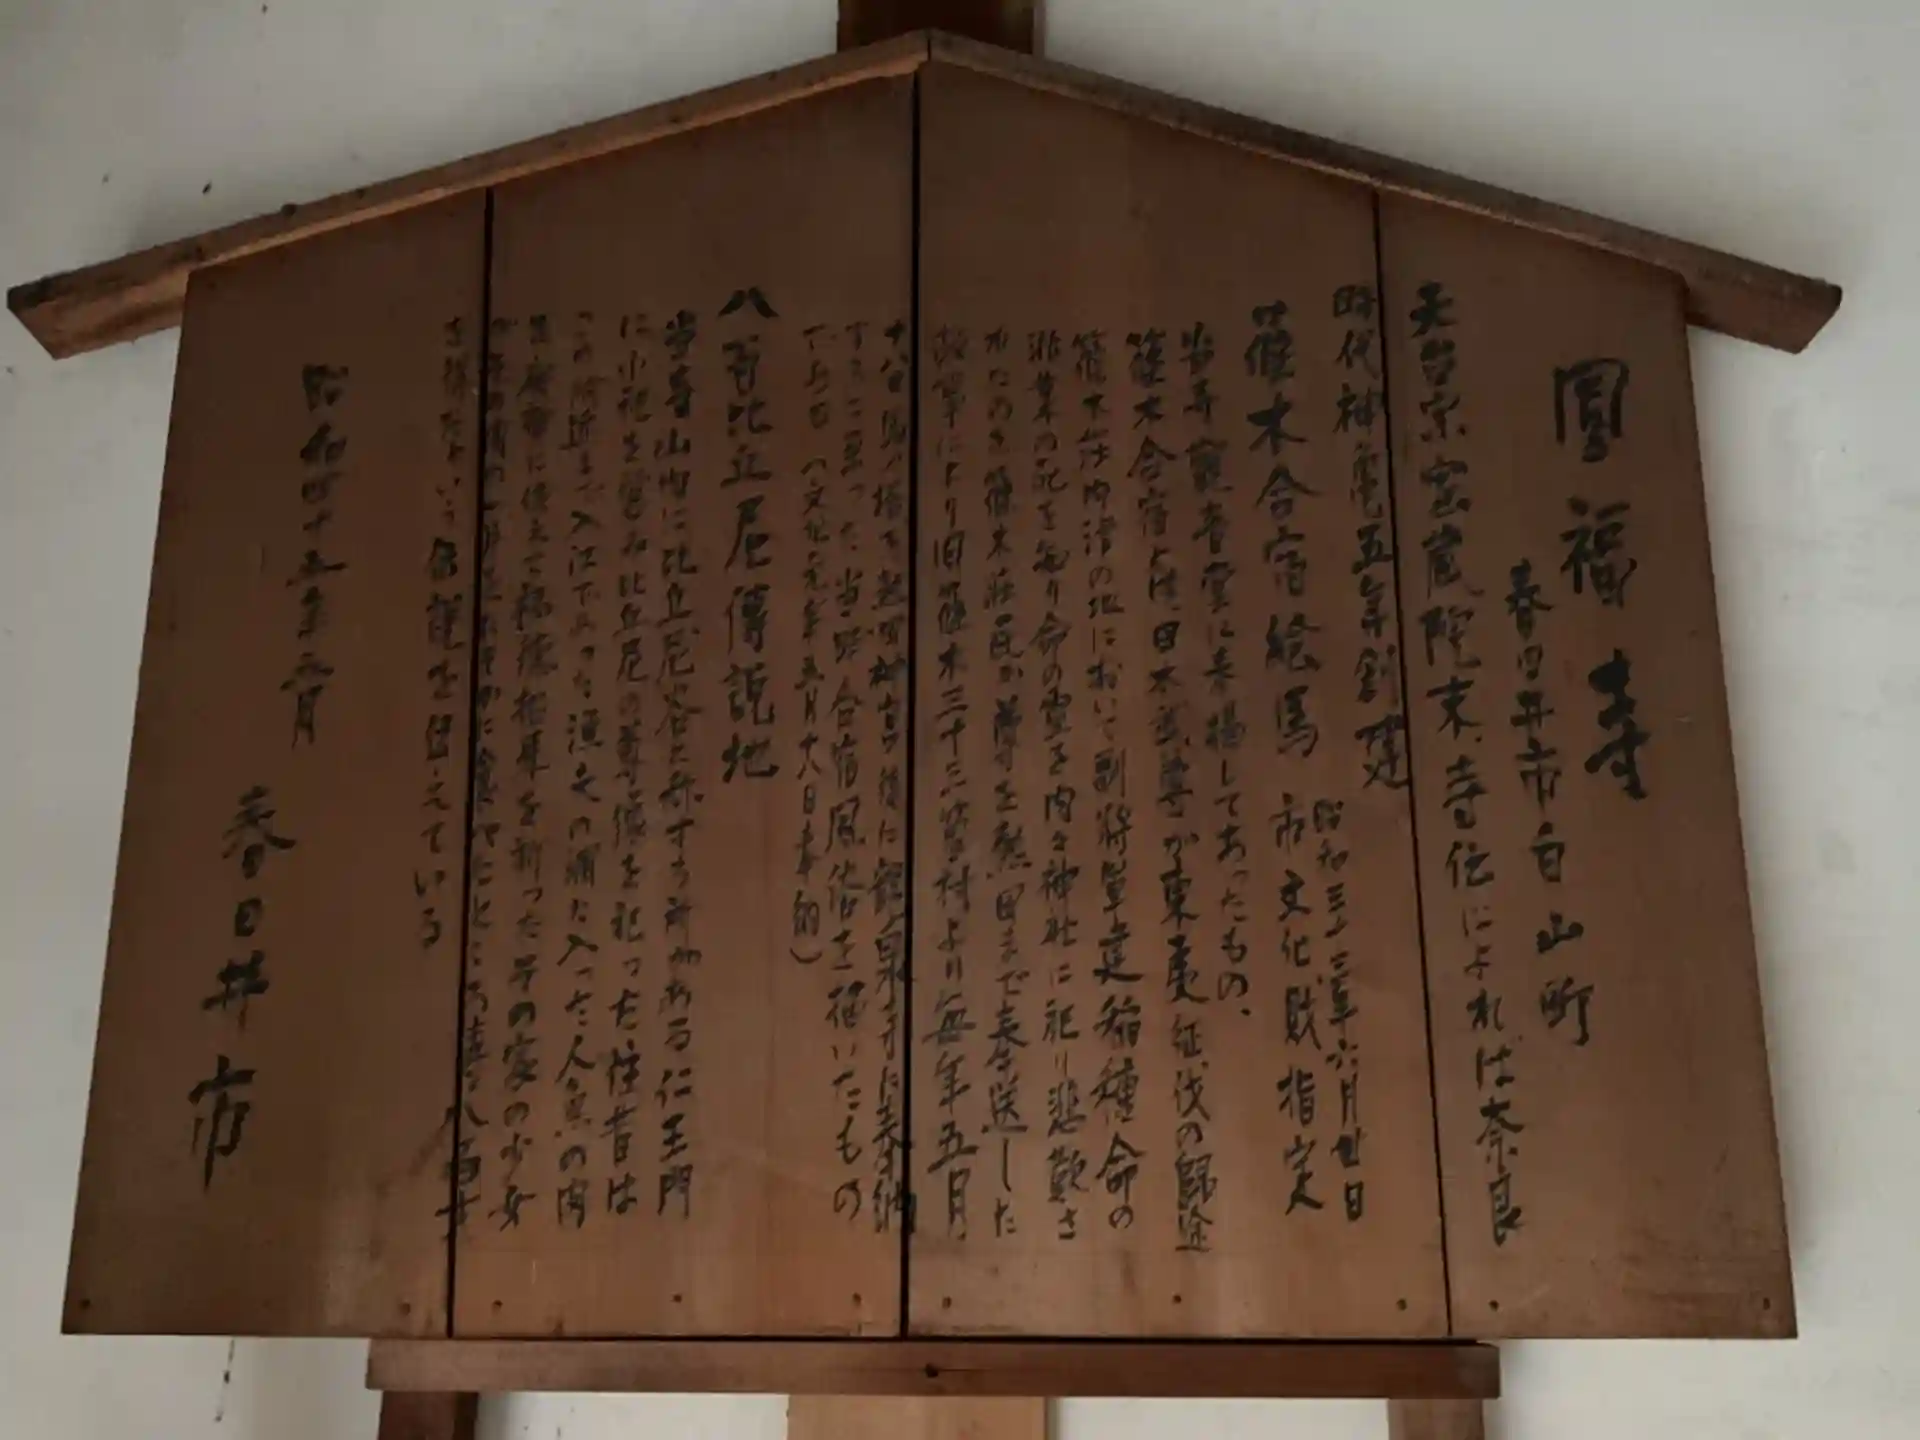 圓福寺
春日井市白山町
天台宗密蔵院末、寺伝によれば奈良
時代神亀五年創建
篠木合宿絵馬
昭和三十三年六月廿日
市文化財指定
当寺観音堂に奉掲してあったもの、
篠木合宿とは、日本武尊が東夷征伐の歸途
篠木荘内津の地において副将軍建稲種命の
非業の死を知り命の霊を内々神社に祀り悲歎さ
れたのを篠木荘民が尊を熱田まで奉送した
故事により旧篠木三十三箇村より毎年五月
十八日馬の塔を熱田神宮 後に龍泉寺に奉納
するに至った当時合宿風俗を描いたもの
である (文化元年五月十八日奉納)
八百比丘尼傳説地
当寺山内に比丘尼谷と称する所がある仁王門
に小祀を営み比丘尼の尊像を祀った往昔は
この附近まで入江であった漁夫の網に入った人魚の肉
を 福徳招来を祈ったその家の少女
が
を得たという傳説を伝えている
昭和四十五年三月
春日井市